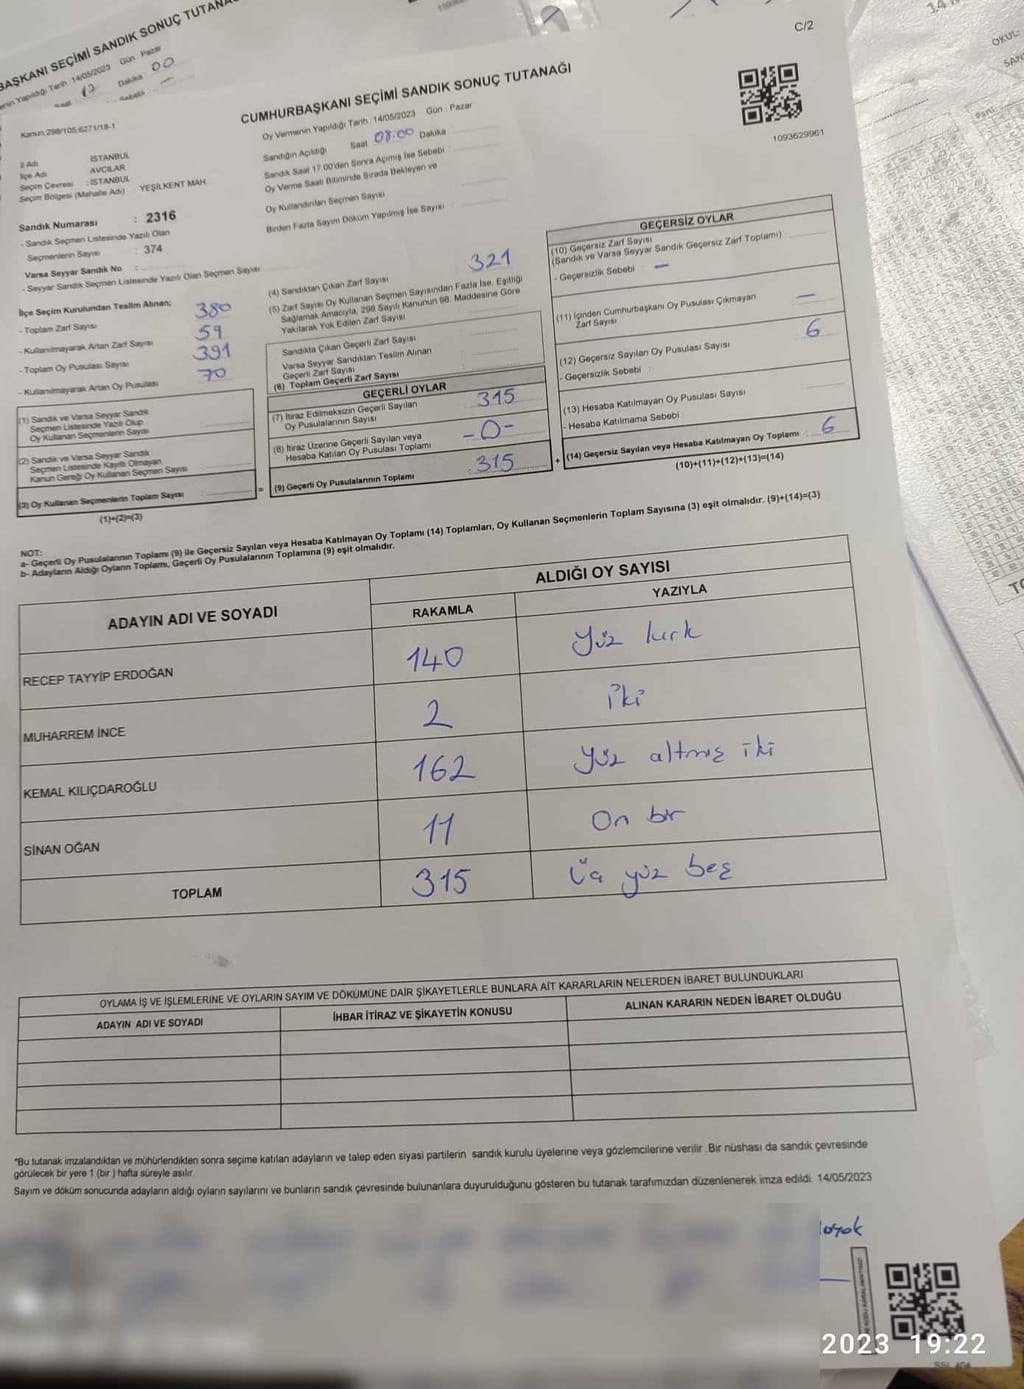 BAŞKANI SEÇİMİ SANDIK SONUÇ TUTANA
Yapıldığı Tarih :14/05/2023 Gün : Pazar
17 Dakika 00
C/2
CUMHURBAŞKANI SEÇİMİ SANDIK SONUÇ TUTANAĞI
Kanun,298/105;6271/18-1
Oy Vermenin Yapıldığı Tarih :14/05/2023 Gün : Pazar
Sandığın Açıldığı Saat 08:00 Dakika
1093629961
İl Adı İSTANBUL
İlçe Adı AVCILAR
Seçim Çevresi : İSTANBUL
Seçim Bölgesi (Mahalle Adı) YEŞİLKENT MAH.
Sandık Saat 17:00'den Sonra Açımış İse Sebebi :
Oy Verme Saati Bitiminde Sırada Bekleyen ve
Oy Kullandırılan Seçmen Sayısı
Birden Fazla Sayım Döküm Yapılmış İse Sayısı :
Sandık Numarası : 2316
- Sandık Seçmen Listesinde Yazılı Olan
Seçmenlerin Sayısı : 374
Varsa Seyyar Sandık No :
- Seyyar Sandık Seçmen Listesinde Yazılı Olan Seçmen Sayısı
İlçe Seçim Kurulundan Teslim Alınan;
- Toplam Zarf Sayısı 380
- Kullanılmayarak Artan Zarf Sayısı 59
- Toplam Oy Pusulası Sayısı 391
- Kullanılmayarak Artan Oy Pusulası 70
(1) Sandık ve Varsa Seyyar Sandık
Seçmen Listesinde Yazılı Olup
Oy Kullanan Seçmenlerin Sayısı
(2) Sandık ve Varsa Seyyar Sandık
Seçmen Listesinde Kayıtlı Olmayan
Kanun Gereği Oy Kullanan Seçmen Sayısı
(3) Oy Kullanan Seçmenlerin Toplam Sayısı
(1)+(2)=(3)
(4) Sandıktan Çıkan Zarf Sayısı 321
(5) Zarf Sayısı Oy Kullanan Seçmen Sayısından Fazla İse, Eşitliği
Sağlamak Amacıyla, 298 Sayılı Kanunun 98. Maddesine Göre
Yakılarak Yok Edilen Zarf Sayısı
Sandıkta Çıkan Geçerli Zarf Sayısı
Varsa Seyyar Sandıktan Teslim Alınan
Geçerli Zarf Sayısı
(6) Toplam Geçerli Zarf Sayısı
GEÇERLİ OYLAR
(7) İtiraz Edilmeksizin Geçerli Sayılan
Oy Pusulalarının Sayısı 315
(8) İtiraz Üzerine Geçerli Sayılan veya
Hesaba Katılan Oy Pusulası Toplamı -0-
= (9) Geçerli Oy Pusulalarının Toplamı 315
GEÇERSİZ OYLAR
(10) Geçersiz Zarf Sayısı
(Sandık ve Varsa Seyyar Sandık Geçersiz Zarf Toplamı) :
- Geçersizlik Sebebi : —
(11) İçinden Cumhurbaşkanı Oy Pusulası Çıkmayan
Zarf Sayısı —
(12) Geçersiz Sayılan Oy Pusulası Sayısı 6
- Geçersizlik Sebebi :
(13) Hesaba Katılmayan Oy Pusulası Sayısı
- Hesaba Katılmama Sebebi :
+ (14) Geçersiz Sayılan veya Hesaba Katılmayan Oy Toplamı : 6
(10)+(11)+(12)+(13)=(14)
NOT:
a- Geçerli Oy Pusulalarının Toplamı (9) ile Geçersiz Sayılan veya Hesaba Katılmayan Oy Toplamı (14) Toplamları, Oy Kullanan Seçmenlerin Toplam Sayısına (3) eşit olmalıdır. (9)+(14)=(3)
b- Adayların Aldığı Oyların Toplamı, Geçerli Oy Pusulalarının Toplamına (9) eşit olmalıdır.
ADAYIN ADI VE SOYADI ALDIĞI OY SAYISI
RAKAMLA YAZIYLA
RECEP TAYYİP ERDOĞAN 140 yüz kırk
MUHARREM İNCE 2 iki
KEMAL KILIÇDAROĞLU 162 yüz altmış iki
SİNAN OĞAN 11 On bir
TOPLAM 315 üç yüz beş
OYLAMA İŞ VE İŞLEMLERİNE VE OYLARIN SAYIM VE DÖKÜMÜNE DAİR ŞİKAYETLERLE BUNLARA AİT KARARLARIN NELERDEN İBARET BULUNDUKLARI
ADAYIN ADI VE SOYADI İHBAR İTİRAZ VE ŞİKAYETİN KONUSU ALINAN KARARIN NEDEN İBARET OLDUĞU
*Bu tutanak imzalandıktan ve mühürlendikten sonra seçime katılan adayların ve talep eden siyasi partilerin sandık kurulu üyelerine veya gözlemcilerine verilir .Bir nüshası da sandık çevresinde
görülecek bir yere 1 (bir ) hafta süreyle asılır.
Sayım ve döküm sonucunda adayların aldığı oyların sayılarını ve bunların sandık çevresinde bulunanlara duyurulduğunu gösteren bu tutanak tarafımızdan düzenlenerek imza edildi. 14/05/2023
2023 19:22